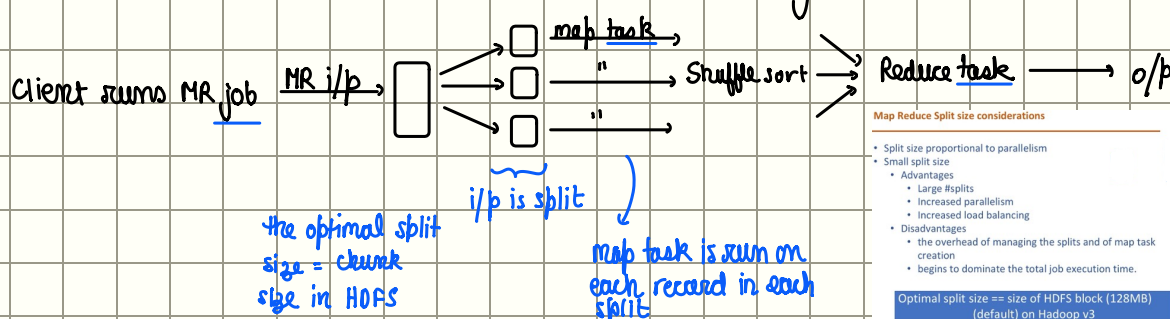 map task
Client runs MR job
MR i/p
"
Shuffle sort
Reduce task
o/p
"
i/p is split
the optimal split
size = chunk
size in HDFS
map task is run on
each record in each
split
Map Reduce Split size considerations
• Split size proportional to parallelism
• Small split size
• Advantages
• Large #splits
• Increased parallelism
• Increased load balancing
• Disadvantages
• the overhead of managing the splits and of map task
creation
• begins to dominate the total job execution time.
Optimal split size == size of HDFS block (128MB)
(default) on Hadoop v3